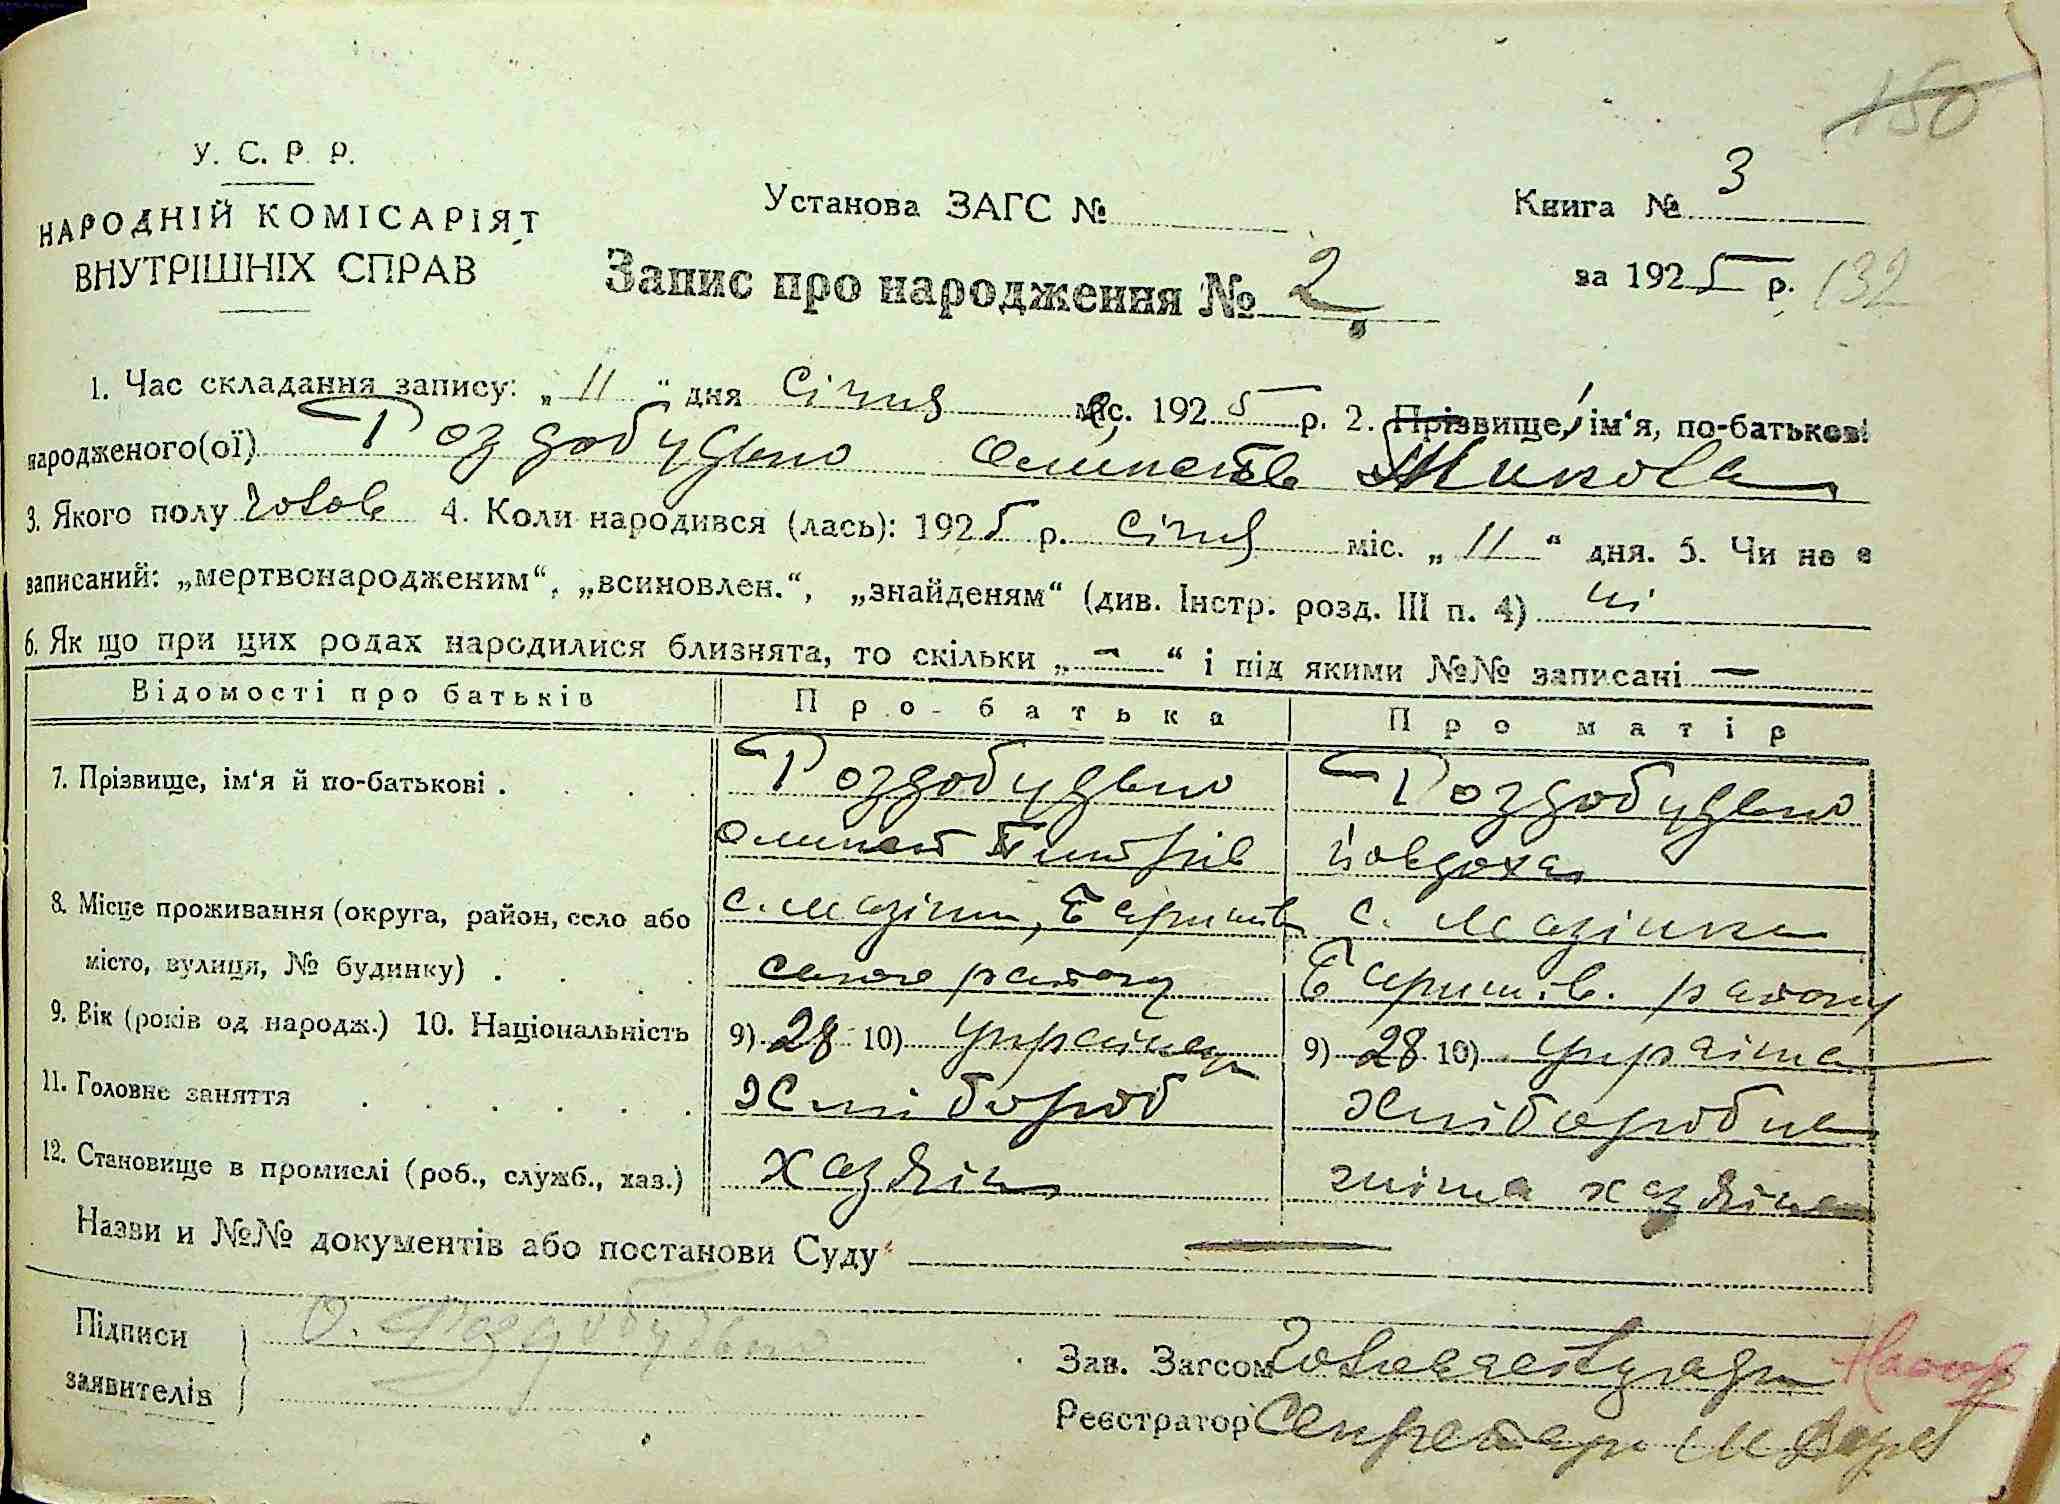 150
У. С. Р. Р.
НАРОДНІЙ КОМІСАРІЯТ
ВНУТРІШНІХ СПРАВ
Установа ЗАГС №
Книга № 3
Запис про народження № 2
за 1925 р. 132
1. Час складання запису: „11“ дня Січня міс. 1925 р. 2. Прізвище, ім‘я, по-батькові
народженого(ої) Роздобудько Микола
3. Якого полу чолов 4. Коли народився (лась): 1925 р. Січня міс. „11“ дня. 5. Чи не є
записаний: „мертвонародженим“, „всиновлен.“, „знайденям“ (див. Інстр. розд. III п. 4) ні
6. Як що при цих родах народилися близнята, то скільки „—“ і під якими №№ записані —
Відомості про батьків Про батька Про матір
7. Прізвище, ім‘я й по-батькові . Роздобудько Роздобудько
Йовдоха
8. Місце проживання (округа, район, село або с. Мазінки, Баришів с. Мазінки
місто, вулиця, № будинку) . ського району Баришів. району
9. Вік (років од народж.) 10. Національність 9) 28 10) Українець 9) 28 10) Українка
11. Головне заняття Хлібороб Хліборобка
12. Становище в промислі (роб., служб., хаз.) хазяїн жінка хазяїна
Назви и №№ документів або постанови Суду —
Підписи О. Роздобудько
заявителів
Зав. Загсом Голова сільради
Реєстратор Секретар